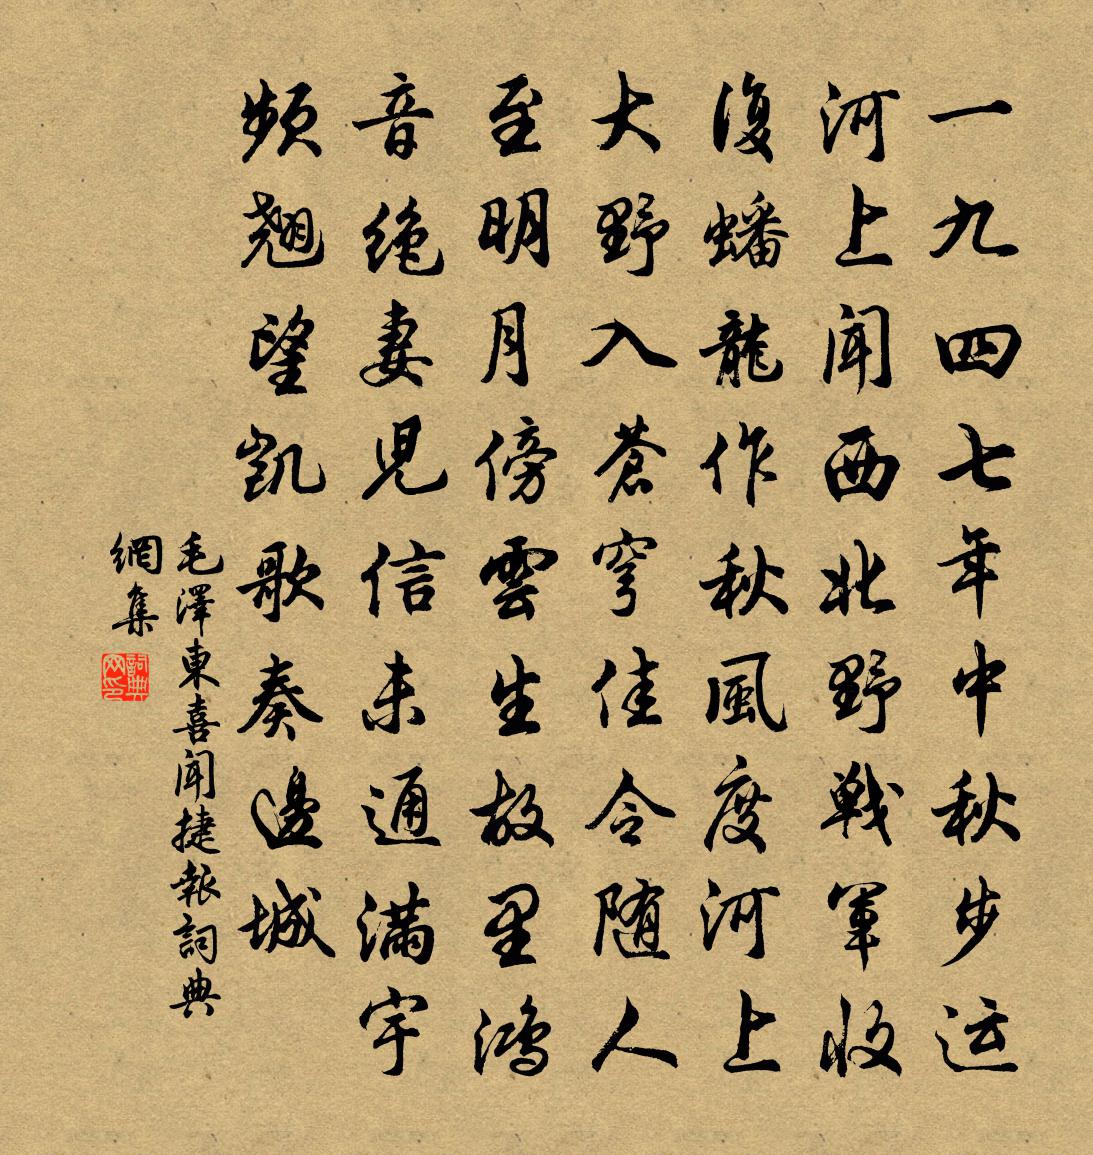 一九四七年中秋步运
河上闻西北野戰軍收
復蟠龍作秋風度河上
大野入蒼穹佳令随人
至明月傍雲生故里鴻
音绝妻児信未通满宇
频翘望凯歌奏邊城
毛澤東喜闻捷報詞典
網集
詞典
网印